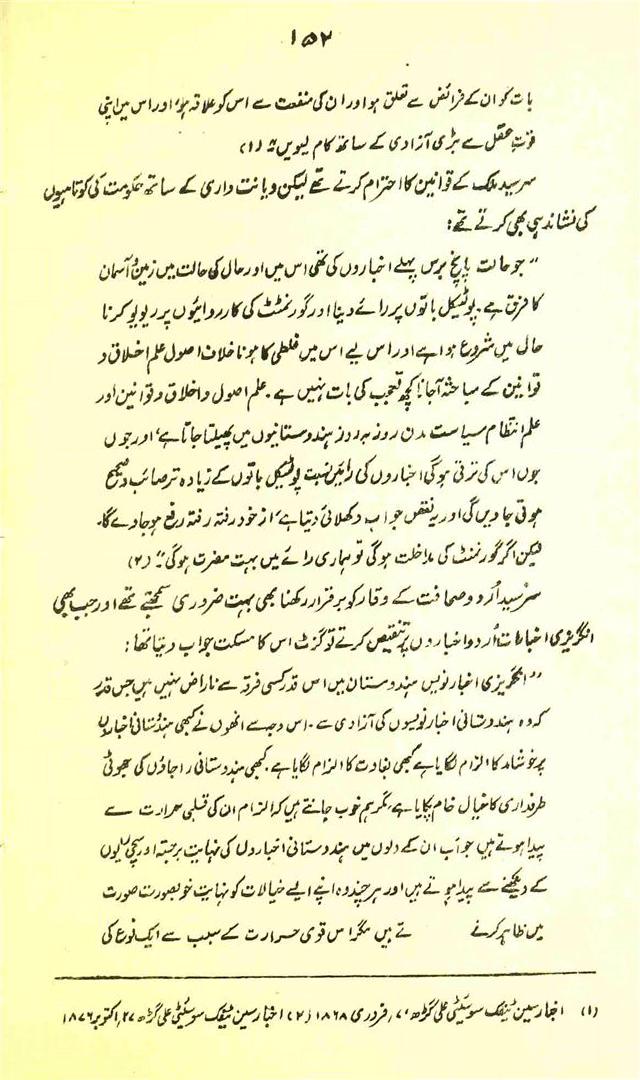 ۱۵۲
بات کو ان کے فرائض سے تعلق ہو اور ان کی منفعت سے اس کو علاقہ ہو، اور اس میں اپنی
قوتِ عقل سے بڑی آزادی کے ساتھ کام لیویں۔" (۱)
سرسید ملک کے قوانین کا احترام کرتے تھے لیکن دیانت داری کے ساتھ حکومت کی کوتاہیوں
کی نشاندہی بھی کرتے تھے:
"جو حالت پانچ برس پہلے اخباروں کی تھی اس میں اور حال کی حالت میں زمین و آسمان
کا فرق ہے۔ پولٹیکل باتوں پر رائے دینا اور گورنمنٹ کی کارروائیوں پر ریویو کرنا
حال میں شروع ہوا ہے اور اس لیے اس میں غلطی کا ہونا خلاف اصول علم اخلاق و
قوانین کے مباحثہ آجانا کچھ تعجب کی بات نہیں ہے۔ علم اصول و اخلاق و قوانین اور
علم انتظام سیاست مدن روز بہ روز ہندوستانیوں میں پھیلتا جاتا ہے، اور جوں
جوں اس کی ترقی ہوگی اخباروں کی رائیں نسبت پولٹیکل باتوں کے زیادہ تر صائب و صحیح
ہوتی جاویں گی اور یہ نقص جو اب دکھلائی دیتا ہے، از خود رفتہ رفتہ رفع ہو جاوے گا۔
لیکن اگر گورنمنٹ کی مداخلت ہوگی تو ہماری رائے میں بہت مضرت ہوگی۔" (۲)
سرسید اُردو صحافت کے وقار کو برقرار رکھنا بھی بہت ضروری سمجھتے تھے اور جب بھی
انگریزی اخبارات اُردو اخباروں پر تنقیص کرتے تو گزٹ اس کا مسکت جواب دیتا تھا:
"انگریزی اخبار نویس ہندوستان میں اس قدر کسی فرقہ سے ناراض نہیں ہیں جس قدر
کہ وہ ہندوستانی اخبار نویسوں کی آزادی سے۔ اس وجہ سے انھوں نے کبھی ہندوستانی اخباروں
پر خوشامد کا الزام لگایا ہے کبھی بغاوت کا الزام لگایا ہے۔ کبھی ہندوستانی راجاؤں کی جھوٹی
طرفداری کا خیال خام پکایا ہے، مگر ہم خوب جانتے ہیں کہ الزام ان کی قلبی حرارت سے
پیدا ہوتے ہیں جو اب ان کے دلوں میں ہندوستانی اخباروں کی نہایت برجستہ اور سچی
کے دیکھنے سے پیدا ہوتے ہیں اور ہر چند وہ اپنے ایسے خیالات کو نہایت خوبصورت صورت
میں ظاہر کرنے تے ہیں مگر اس قوی حرارت کے سبب سے ایک نوع کی
(۱) اخبار سین ٹیفک سوسیٹی علی گڑھ ۷، فروری ۱۸۶۸ (۲) اخبار سین ٹیفک سوسیٹی علی گڑھ ۲۷، اکتوبر ۱۸۷۶